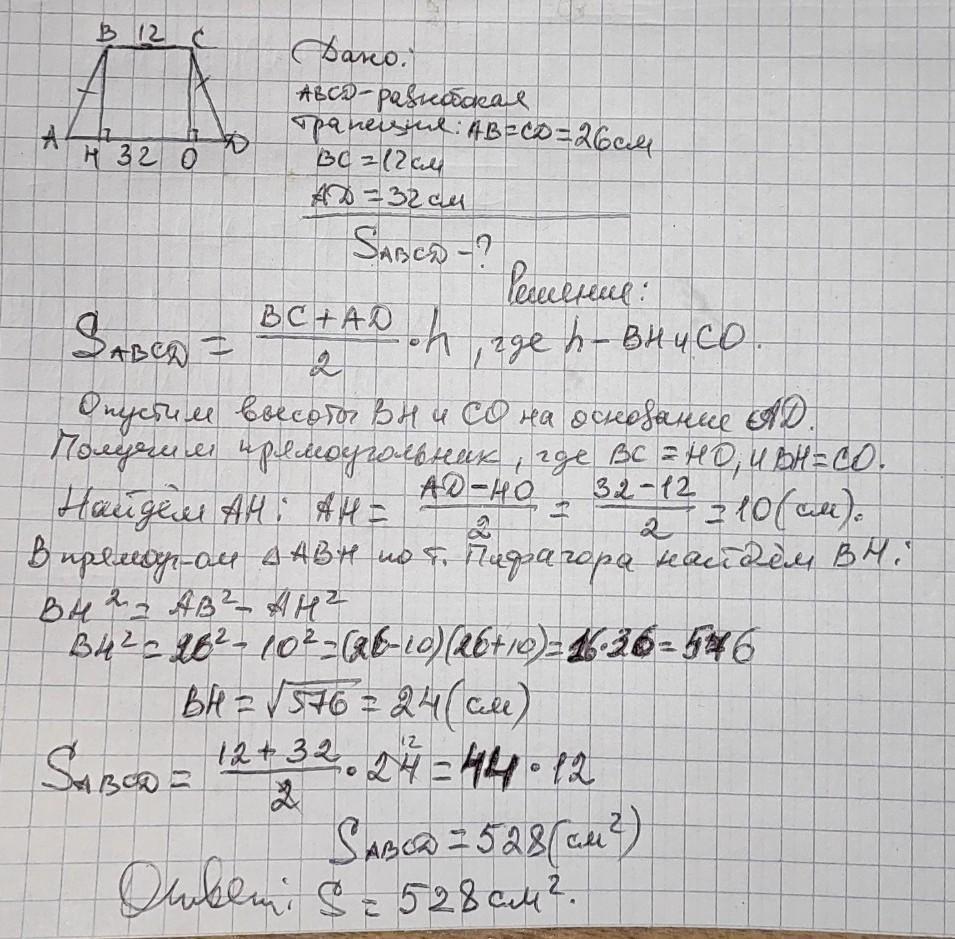 B 12 C
A H 32 O D
Дано:
ABCD-равнобокая
трапеция: AB=CD=26см
BC=12см
AD=32см
S_ABCD-?
Решение:
S_ABCD = (BC+AD)/2 · h, где h - BH и CO.
Опустим высоты BH и CO на основание AD.
Получим прямоугольник, где BC=HO, и BH=CO.
Найдём AH: AH = (AD-HO)/2 = (32-12)/2 = 10(см).
В прямоуг-ом △ABH по т. Пифагора найдём BH:
BH² = AB² - AH²
BH² = 26² - 10² = (26-10)(26+10) = 16·36 = 576
BH = √576 = 24(см)
S_ABCD = (12+32)/2 · 24 12 = 44 · 12
S_ABCD = 528(см²)
Ответ: S = 528см².